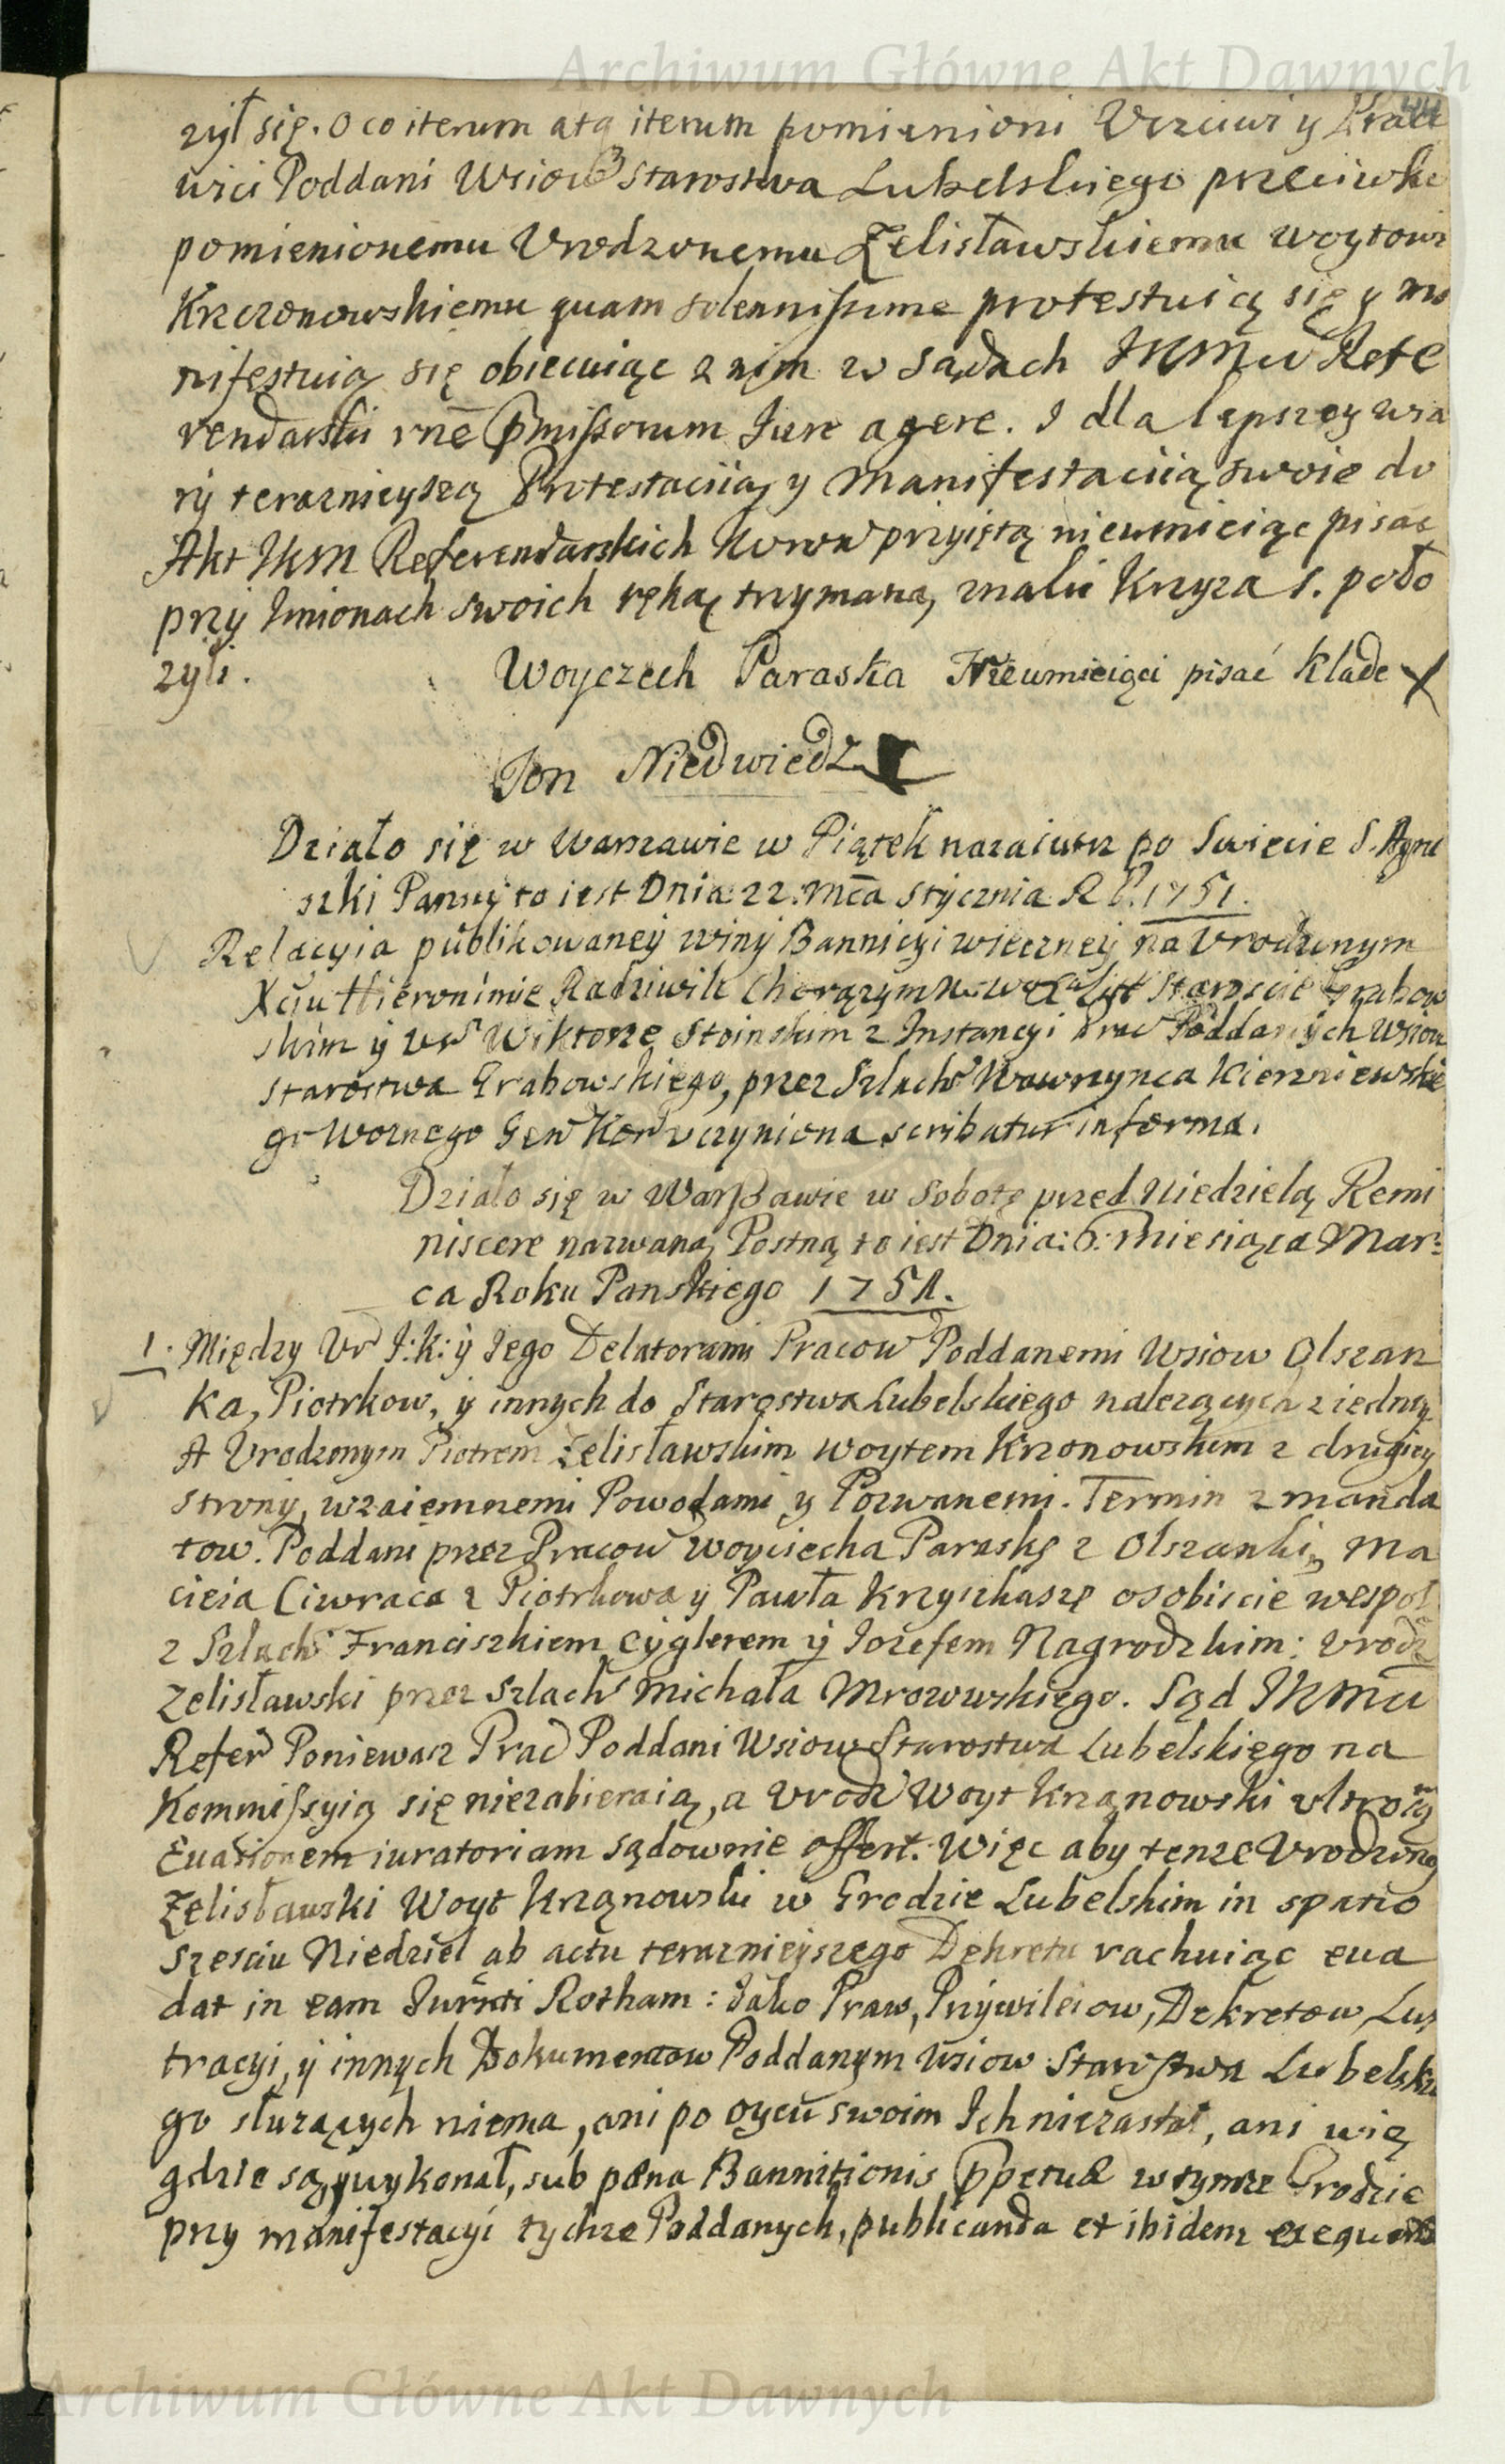 Archiwum Główne Akt Dawnych
zył się. O co iterum atq iterum pomienioni Vczciwi y Prace
wici Poddani Wsiow Starostwa Lubelskiego przeciwko
pomienionemu Vrodzonemu Zelisławskiemu woytowi
Krzczonowskiemu quam solennissime protestuią się y ma
nifestuią się obiecuiąc z nim w Sądach JKMci Refe
rendarski rñe pmissorum Jure agere. I dla lepszey wia
ry teraznieyszą Protestacyią y Manifestaciią swoie do
Akt JKM Referendarskich Koron przyiętą nieumieiąc pisać
przy Imionach swoich ręką trzymaną znaki Krzyza S. poło
zyli.
Woyczech Paraska Nieumieiąci pisać klade X
Jon Niedwiedz
Działo się w Warszawie w Piątek nazaiutrz po Swięcie S. Agni
szki Panny to iest Dnia 22. Mca Stycznia R P. 1751.
Relacyia publikowaney winy Bannicyi wieczney na Vrodzonym
Xciu Hieronimie Radziwile Chorązym W X Lit Staroscie Grabow
skim y Vr Wiktorze Stoinskim z Instancyi Prac Poddanych Wsiow
Starostwa Grabowskiego, przez Szlach Wawrzynca Kierzniewskie
go Woznego Gen Kor vczyniona scribatur in forma.
Działo się w Warszawie w Sobotę przed Niedzielą Remi
niscere nazwaną Postną to iest Dnia: 6: Miesiąca Mar:
ca Roku Panskiego 1751.
1. Między Vr I: K: y Jego Delatorami Pracow Poddanemi Wsiow Olszan
ka, Piotrkow, y innych do Starostwa Lubelskiego nalezących z iedney
A Vrodzonym Piotrem Zelisławskim woytem Krzonowskim z drugiey
strony, wzaiemnemi Powodami y Pozwanemi. Termin z manda
tow. Poddani przez Pracow Woyciecha Paraskę z Olszanki, Ma
cieia Ciwraca z Piotrkowa y Pawła Krzyszkaszę osobiscie wespoł
z Szlach Franciszkiem Cyglerem y Jozefem Nagrodzkim: Vrodz
Zelisławski przez Szlach Michała Mrozowskiego. Sąd JKMci
Refer Poniewasz Prac Poddani Wsiow Starostwa Lubelskiego na
Kommissyią się niezabieraią, a Vrodz Woyt Krząnowski
Euasionem iuratoriam sądownie offert. Więc aby tenze Vrodzony
Zelisławski Woyt Krząnowski w Grodzie Lubelskim in spatio
Szesciu Niedziel ab actu terazniejszego Dekretu rachuiąc eua
dat in eam Jurnti Rotham: Jako Praw, Przywileiow, Dekretow, Lus
tracyi, y innych Dokumentow Poddanym Wsiow Starostwa Lubelskie
go słuzących niema, ani po oycu swoim Ich niezastał, ani wie
gdzie są, y wykonał, sub pæna Bannitionis ppetuæ w tymze Grodzie
przy manifestacyi tychze Poddanych, publicanda et ibidem exequenda
Archiwum Główne Akt Dawnych